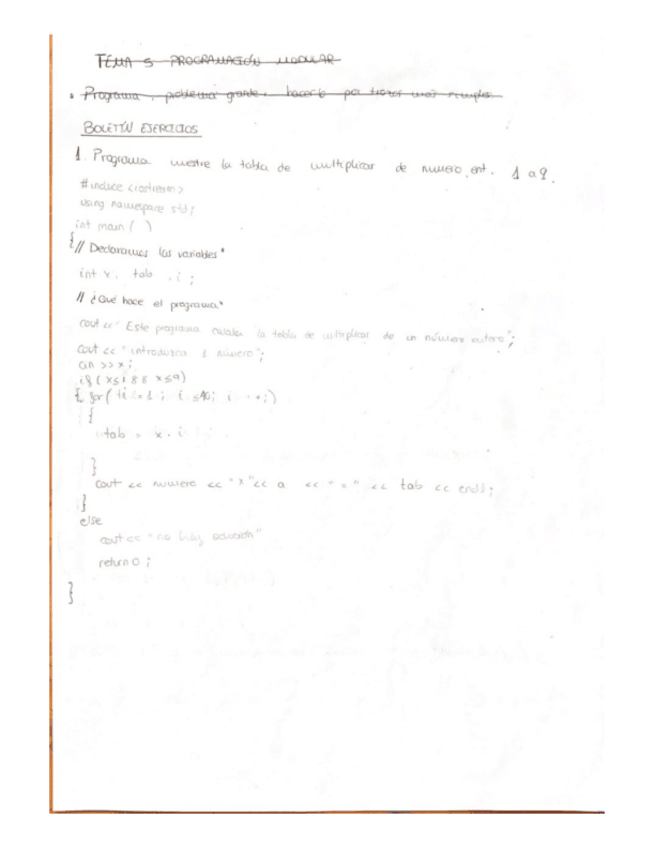 TEMA 5 PROGRAMACIÓN MODULAR
• Programa, problema grande, hacerlo por trozos mas simples
BOLETÍN EJERCICIOS
1. Programa muestre la tabla de multiplicar de numero ent. 1 a 9.
#include <iostream>
using namespace std;
int main( )
{// Declaramos las variables"
int x, tab , i ;
// ¿Qué hace el programa"
cout << " Este programa calcula la tabla de multiplicar de un número entero";
cout << "introduzca 1 número";
cin >> x;
if( x≤1 && x≤9)
{ for( i =1 ; i ≤10; i ++;)
{
tab = x . i ;
}
cout << numero << "x" << a << "=" << tab << endl;
}
else
cout << "no hay solución"
return 0 ;
}